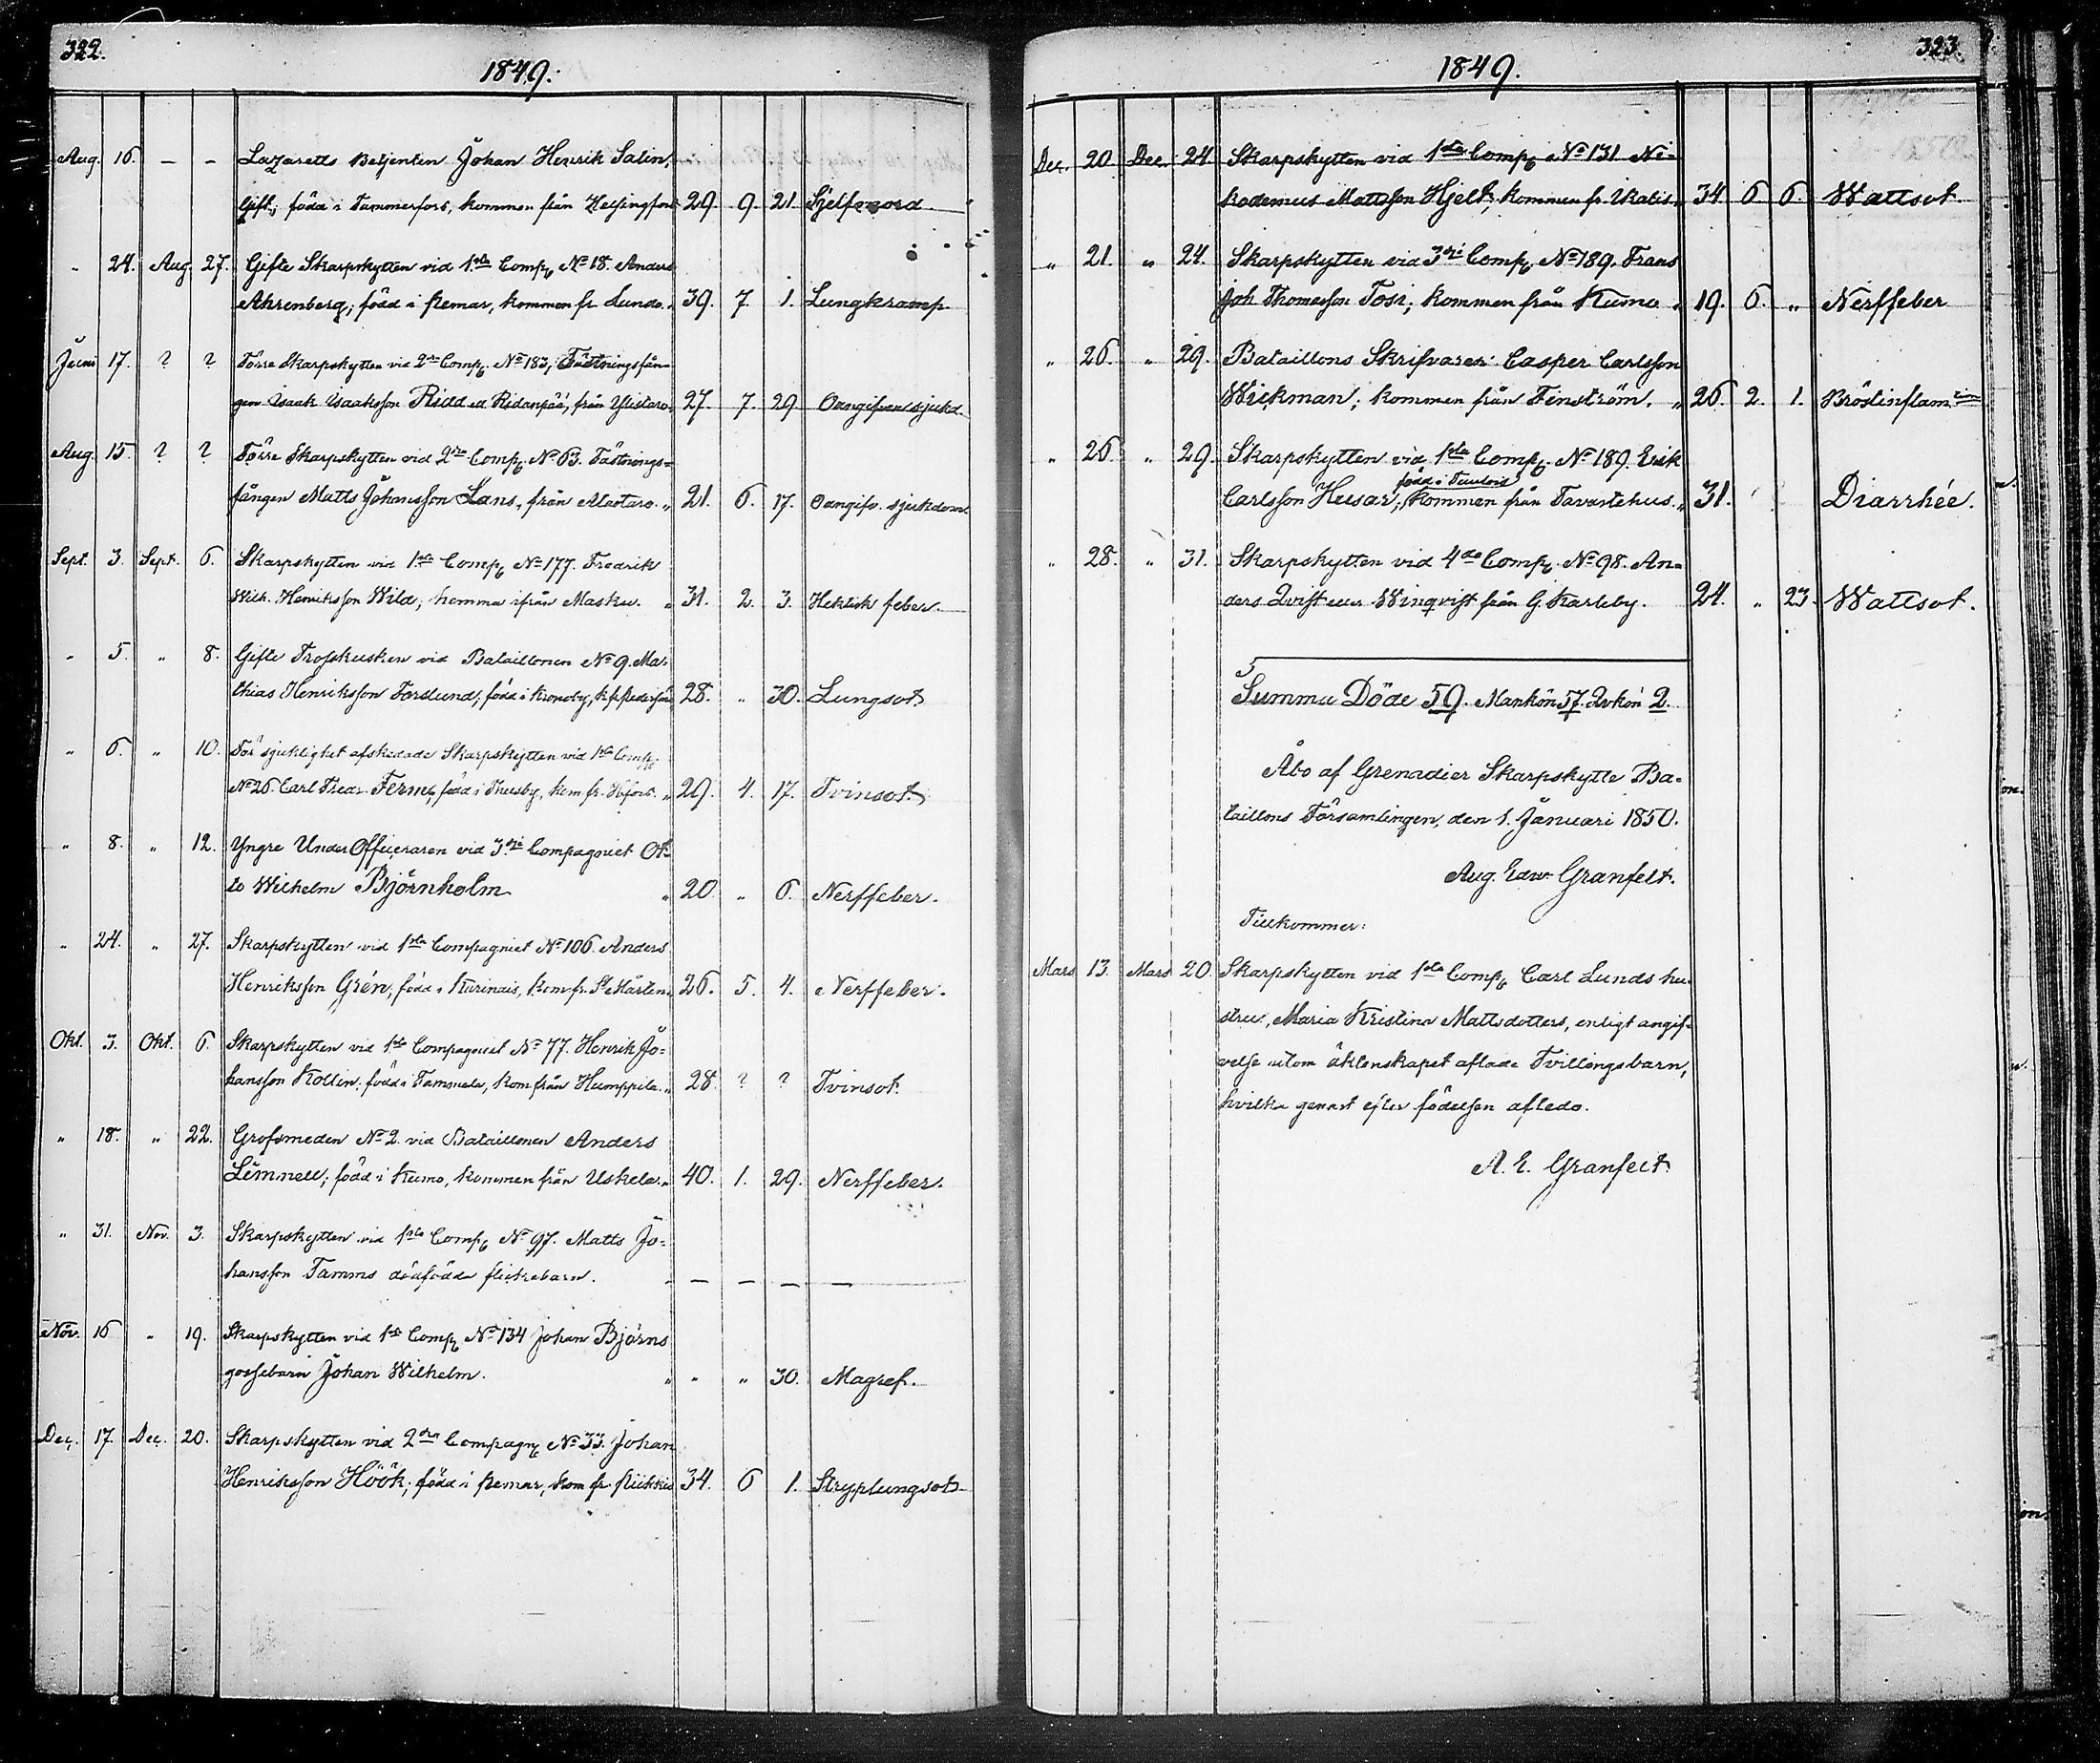 322.
1849.
Aug. 16. – – Lazaretts Betjenten Johan Henrik Salin,
Gift; född i Tammerfors, kommen från Helsingfors 29. 9. 21. Sjelfmord
" 24. Aug. 27. Gifte Skarpskytten vid 1sta Comp. No 18. Anders
Ahrenberg; född i Kemar, kommen fr. Lundo. " 39. 7. 1. Lungkramp
Juni 17. ? ? Förre Skarpskytten vid 2dra Comp. No 183, Fästningsfån=
gen Isaak Isaaksson Ridd Ridanpää, från Ylistaro. 27. 7. 29 Oangifven sjukd.
Aug. 15. ? ? Förre Skarpskytten vid 2dra Comp. No 63. Fästnings=
fången Matts Johansson Lans, från Alastaro. " 21. 6. 17. Oangifv. sjukdom
Sept. 3. Sept. 6. Skarpskytten vid 1sta Comp. No 177. Fredrik
Wilh. Henriksson Wild; hemma ifrån Masku. " 31. 2. 3. Hektisk feber.
" 5. " 8. Gifte Trosskusken vid Bataillonen No 9. Ma=
thias Henriksson Forslund; född i Kronoby, 28. " 30. Lungsot
" 6. " 10. För sjuklighet afskedade Skarpskytten vid 1sta Comp.
No 26. Carl Fredr. Ferm, född i Thusby, kom fr. Hfors. " 29. 4. 17. Tvinsot.
" 8. " 12. Yngre UnderOfficeraren vid 3dje Compagniet Ot=
to Wilhelm Björnholm " 20. " 6. Nerffeber.
" 24. " 27. Skarpskytten vid 1sta Compagniet No 106. Anders
Henriksson Grén; född i Karinais, kom fr. St Mårtens 26. 5. 4. Nerffeber.
Okt. 3. Okt. 6. Skarpskytten vid 1sta Compagniet No 77. Henrik Jo=
hansson Kollin; född i Tammela, kom från Humppila. " 28. ? ? Tvinsot.
" 18. " 22. Grofsmeden No 2. vid Bataillonen Anders
Lemmell; född i Kumo, kommen från Uskela. " 40. 1. 29. Nerffeber.
" 31. Nov. 3. Skarpskytten vid 1sta Comp. No 97. Matts Jo=
hansson Tamms dödfödda flickebarn. – – – –
Nov. 16 " 19. Skarpskytten vid 1sta Comp. No 134 Johan Björns
gossebarn Johan Wilhelm. " " " 30. Magref.
Dec. 17. Dec. 20. Skarpskytten vid 2dra Compagn. No 33. Johan
Henriksson Höök; född i Kemar, kom fr. Piikkis 34. 6 1. Stryplungsot
323.
1849.
Dec. 20. Dec. 24. Skarpskytten vid 1sta Comp. No 131 Ni=
kodemus Mattsson Hjelt; kommen fr. Ikalis. 34. 6 6. Wattsot
" 21. " 24. Skarpskytten vid 3dje Comp. No 189. Frans
Joh. Thomasson Tosi; kommen från Kumo " 19. 6. " Nerffeber
" 26. " 29. Bataillons Skrifvaren Casper Carlsson
Wickman; kommen från Finström. " 26. 2. 1. Bröstinflam.tion
" 26. " 29. Skarpskytten vid 1sta Comp. No 189. Erik
född i Tenlois
Carlsson Husar; kommen från Tavastehus. " 31. Diarrhée.
" 28. " 31. Skarpskytten vid 4de Comp. No 98. An=
ders Qvist eller Winqvist från G. Karleby. 24. " 23. Wattsot.
Summa Döde 59. Mankön 57. Qvkön 2.
Åbo af Grenadier Skarpskytte Ba=
taillons Församlingen, den 1. Januari 1850.
Aug. Edw. Granfelt.
Tillkommer:
Mars 13. Mars 20. Skarpskytten vid 1sta Comp. Carl Lunds hu=
stru, Maria Kristina Mattsdotters, enligt angif=
velse utom äktenskapet aflade Tvillingsbarn,
hvilka genast efter födelsen afledo.
A. E. Granfelt.